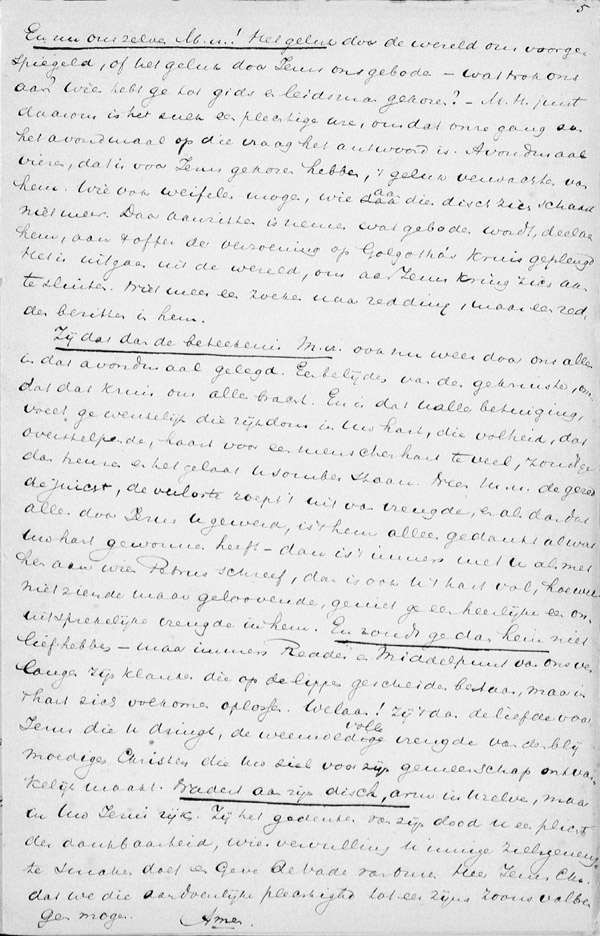 5
En nu ons zelve M. n.! Het geluk door de wereld ons voorge
spiegeld, of het geluk door Jezus ons geboden – wat trok ons
aan? Wie hebt ge tot gids en leidsman gekozen? – M. H. juist
daarom is het zulk een plechtige ure, omdat onze gang
het avondmaal op die vraag het antwoord is. Avondmaal
vieren, dat is voor Jezus gekozen hebben, 't geluk verwachten van
hem. Wie ook weifelen moge, wie aan die disch zich schaard
niet meer. Daar aanzitten is nemen wat geboden wordt, deel aan
hem, aan 't offer der verzoening op Golgotha's Kruis geplengd
Het is uitgaan uit de wereld, om aan Jezus Kring zich aan
te sluiten. Niet meer een zoeken naar redding, maar een red
der bezitten in hem.
Zij dat dan de beteekenis M. n. ook nu weer door ons allen
in dat avondmaal gelegd. Een belijden van den gekruiste, om
dat dat kruis ons alles bracht. En is dat U alle betuiging,
voelt ge werkelijk die rijkdom in Uw hart, die volheid, dat
overstelpende, haast voor een menschenhart te veel, zoudt ge
dan treuren en het gelaat U somber staan. Neen m. n. de gered
de juicht, de verloste roept 't uit van vreugde, en als dan dat
alles door Jezus U geworden, is 't hem alleen gedankt al wat
Uw hart gewonnen heeft – dan is 't immers met U als met
hen aan wie Petrus schreef, dan is ook U 't hart vol, hoewel
niet ziende maar geloovende, geniet ge een heerlijke en on
uitsprekelijke vreugde in hem. En zoudt ge dan hem niet
liefhebben – maar immers Redder en Middelpunt van ons ver
langen zijn klanken die op de lippen gescheiden bestaan, maar in
't hart zich volkomen oplossen. Welaan! Zij 't dan de liefde voor
Jezus die U dringt, de weemoedige volle vreugde van den blij
moedigen Christen die Uw ziel voor zijn gemeenschap ontvan
kelijk maakt. Nadert aan zijn disch, arm in U zelve, maar
in Uw Jezus rijk. Zij het gedenken van zijn dood U een plicht
der dankbaarheid, wier vervulling U innige zielsgenieting
te smaken doet en Geve de Vader van onzen Heer Jezus Chr.
dat we die aandoenlijke plechtigheid tot eer zijns Zoons volbren
gen mogen. Amen.